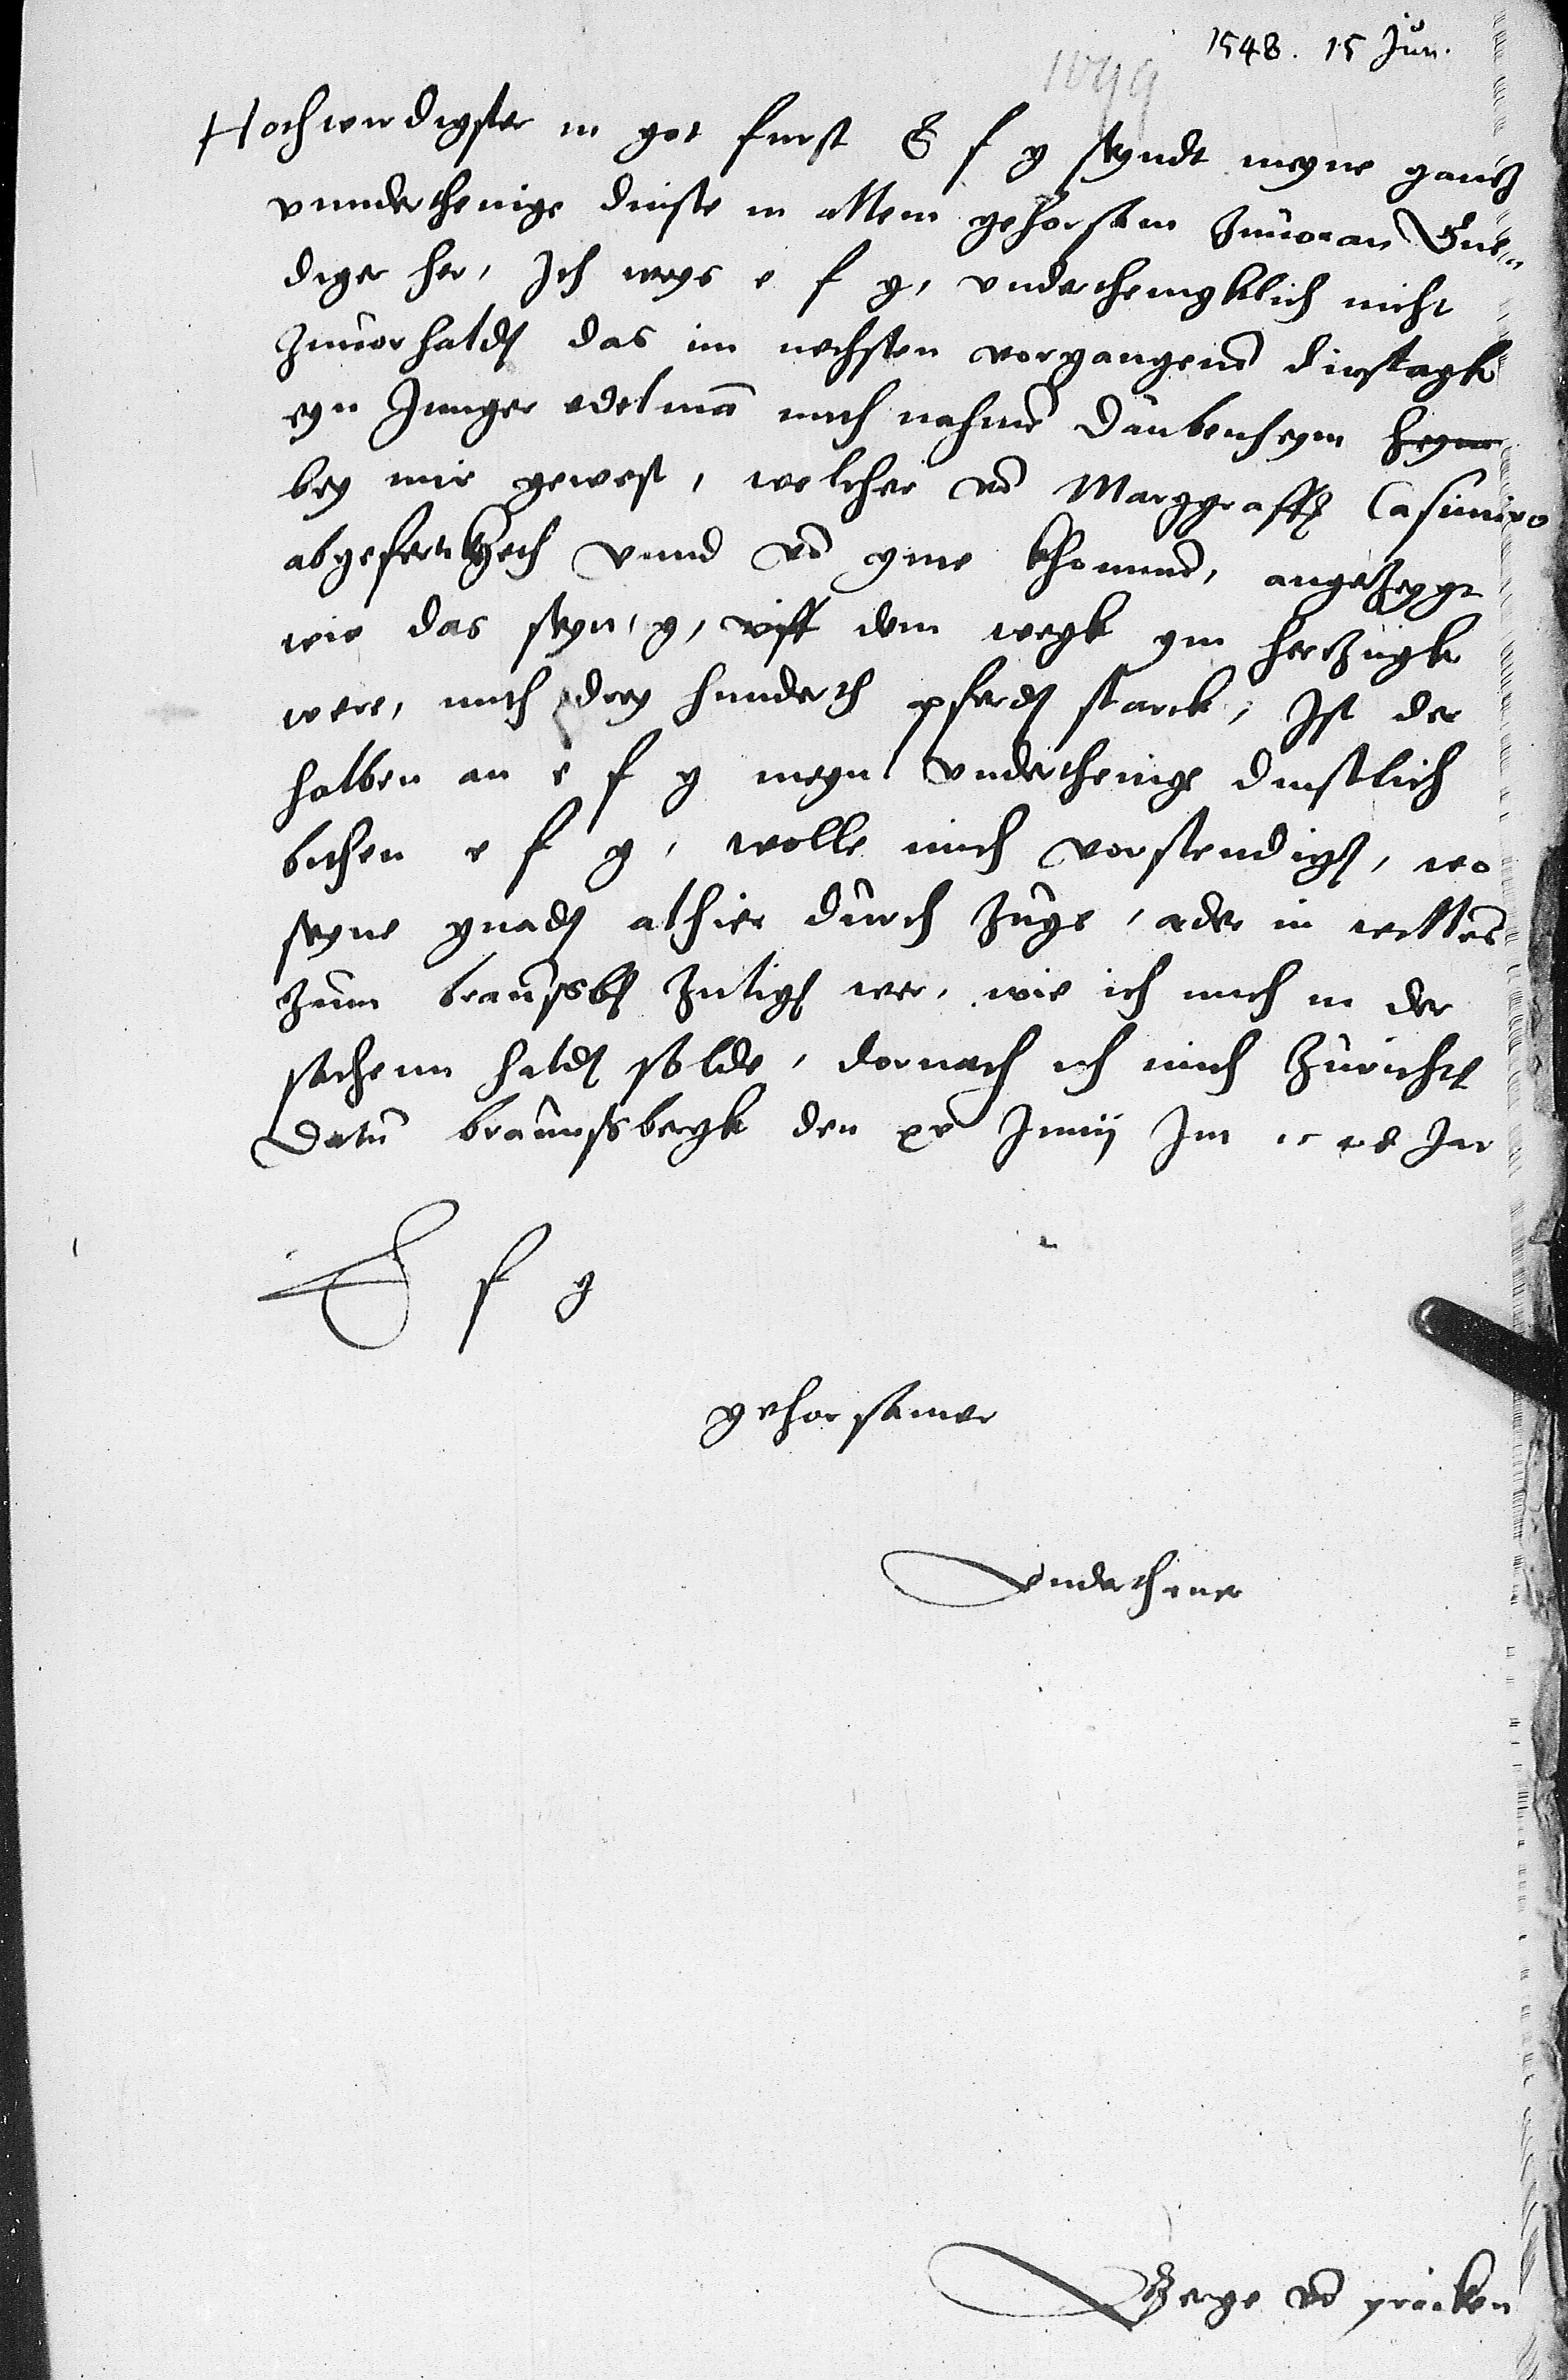 1548. 15 Jun.
1099
Hochwirdigster in got furst E f g seyndt meyne gantz
vnnderthenige dinste in allem gehorsam zuuoran Gne
diger her, Ich weys e f g, vnderthenigklich nicht
zuuorhaldn das im nechsten vorgangenn dinstagk
eyn Junger edelman mith nahmen Daubenheym heym
bey mir gewest, welcher von Marggraff Casimiro
abgefertigeth vnnd von yme khommen, angetzeygt
wie das seyn, g, vff dem wegk ym hertzugk
were, mith drey hunderth pferdn starck, Ist der
halben an e f g meyn vnderthenige dinstlich
bithen e f g, wolle mich vorstendign, wo
seyne gnadn alhier durch zuge, ader in willens
zum braunssbg zuligen wer, wie ich mich in der
sachenn haldn solde, dornach ich mich zurichten
Datum braunssbergk den xv Junij Im 48 Jar
E f g
gehorsamer
Vnderthener
Gerge von